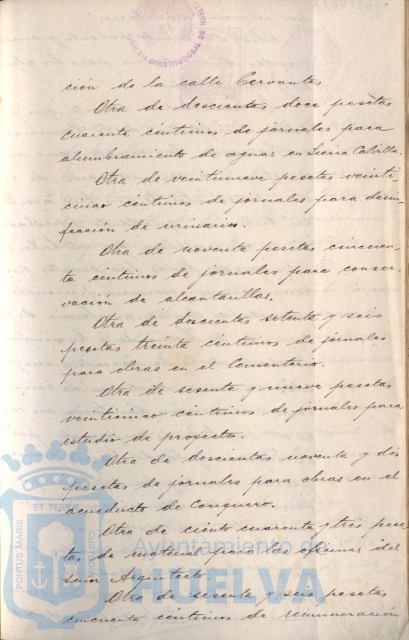 ción de la calle Cervantes
Otra de doscientas doce pesetas
cuarenta céntimos de jornales para
alumbramiento de aguas en
Otra de veintinueve pesetas veinti-
cinco centimos de jornales para desin-
fección de urinarios.
Otra de noventa pesetas cincuen-
ta céntimos de jornales para conser-
vación de alcantarillas.
Otra de doscientas setenta y seis
pesetas treinta centimos de jornales
para obras en el Cementerio.
Otra de sesenta y nueve pesetas
veinticinco centimos de jornales para
estudio de proyecto.
Otra de doscientas noventa y dos
pesetas de jornales para obras en el
acueducto de Conquero.
Otra de ciento cuarenta y tres pese-
tas de material para las oficinas del
señor Arquitecto.
Otra de sesenta y seis pesetas
cincuenta céntimos de remuneración
PORTUS MARIS
ET TERRAE
CUSTODIA
Ayuntamiento de
HUELVA